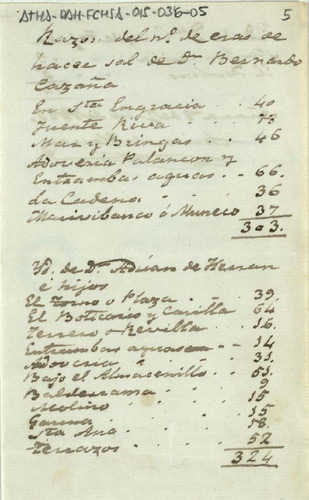 ATHA-DAH-FCHSA-015-036-05
5
Razon del nº. de eras de
hacer sal de Dn. Bernardo
Cazaña
En Sta. Engracia . . 40
Fuente Riva . . 78
Mar y Bringas . . 46
Adoveria Palancon y
Entrambas aguas . . 66.
la Cadena . . 36
Mariribanco ó Muneco 37
303.
Yd. de Dn. Adrian de Herran
e hijos
El Torno o Plaza . . 39.
El Boticario y Casilla 64
Terrero o Revilla . . 16.
Entrambas aguas . . 14
Adoveria . . 31.
Bajo el Almacenillo . . 51.
Balderrama . . 9
Molino . . 15
. . 15
Sta. Ana . . 18.
Terrazos . . 52
324